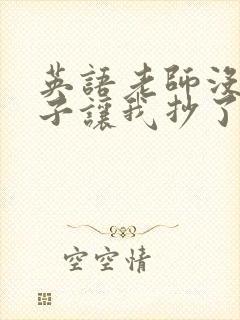 英語老師沒
子讓我抄了
空空情